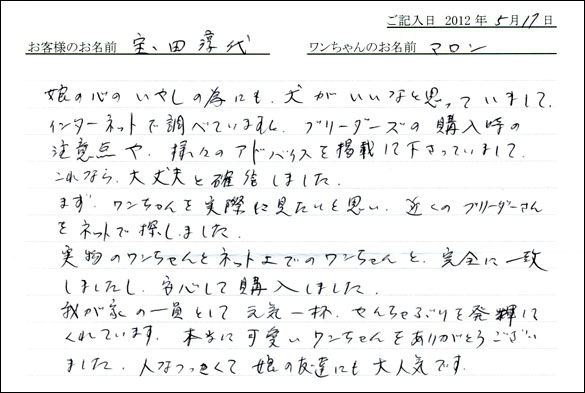 ご記入日 2012年5月17日
お客様のお名前 宝田淳代 ワンちゃんのお名前 マロン
娘の心のいやしの為にも、犬がいいなと思っていまして、
インターネットで調べていますと、ブリーダーズの購入時の
注意点や、様々のアドバイスを掲載して下さっていまして、
これなら、大丈夫と確信しました。
まず、ワンちゃんを実際に見たいと思い、近くのブリーダーさん
をネットで探しました。
実物のワンちゃんとネット上でのワンちゃんと、完全に一致
しましたし、安心して購入しました。
我が家の一員として元気一杯、やんちゃぶりを発揮して
くれています。本当に可愛いワンちゃんをありがとうござい
ました。人なつっこくて娘の友達にも大人気です。